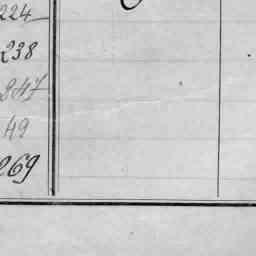 224
238
247
49
269